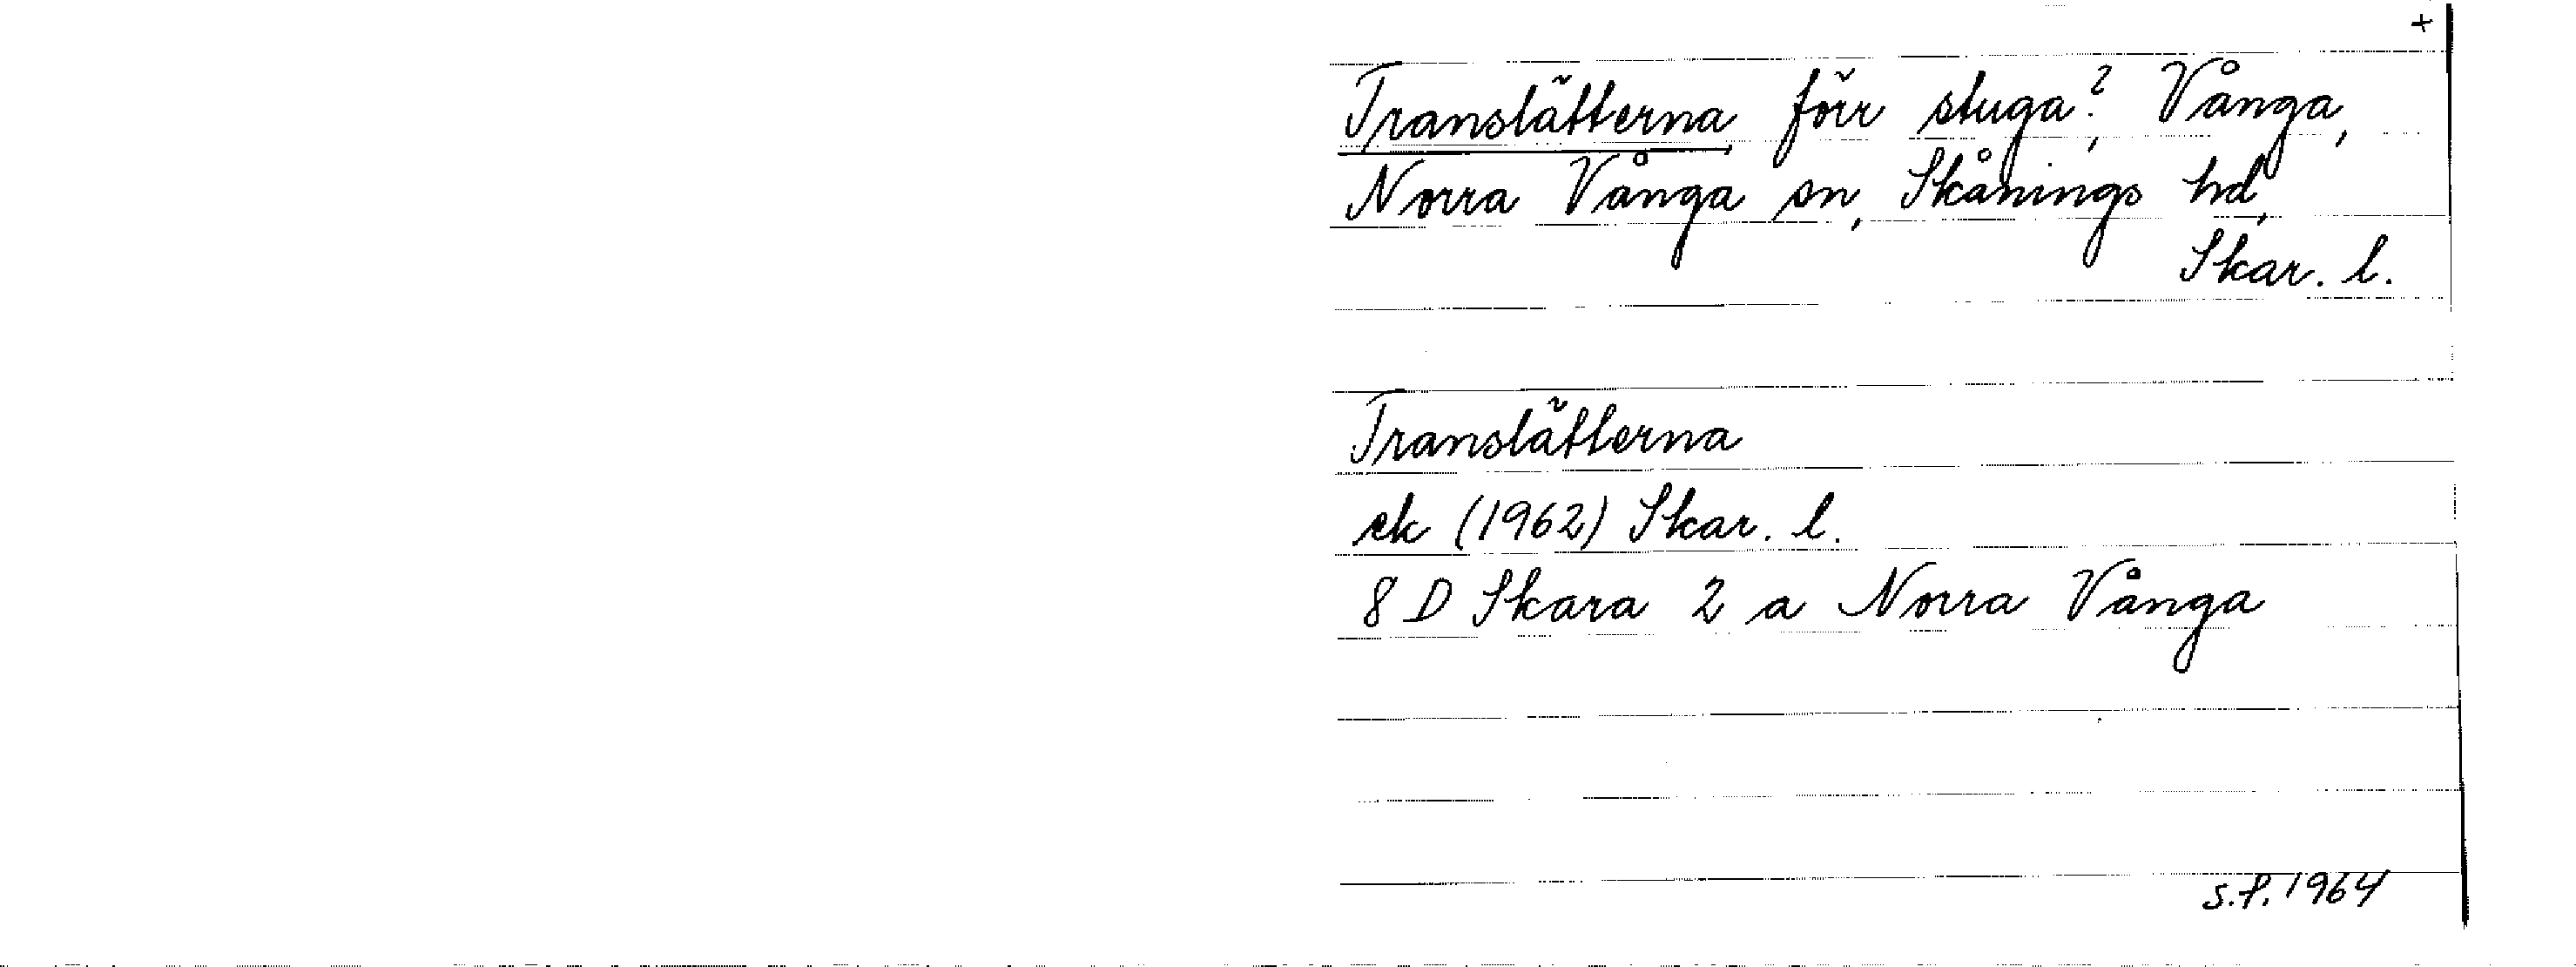 +
Translätterna förr stuga?, Vånga,
Norra Vånga sn, Skånings hd,
Skar. l.
Translätterna
ek (1962) Skar. l.
8 D Skara 2 a Norra Vånga
S.F. 1964